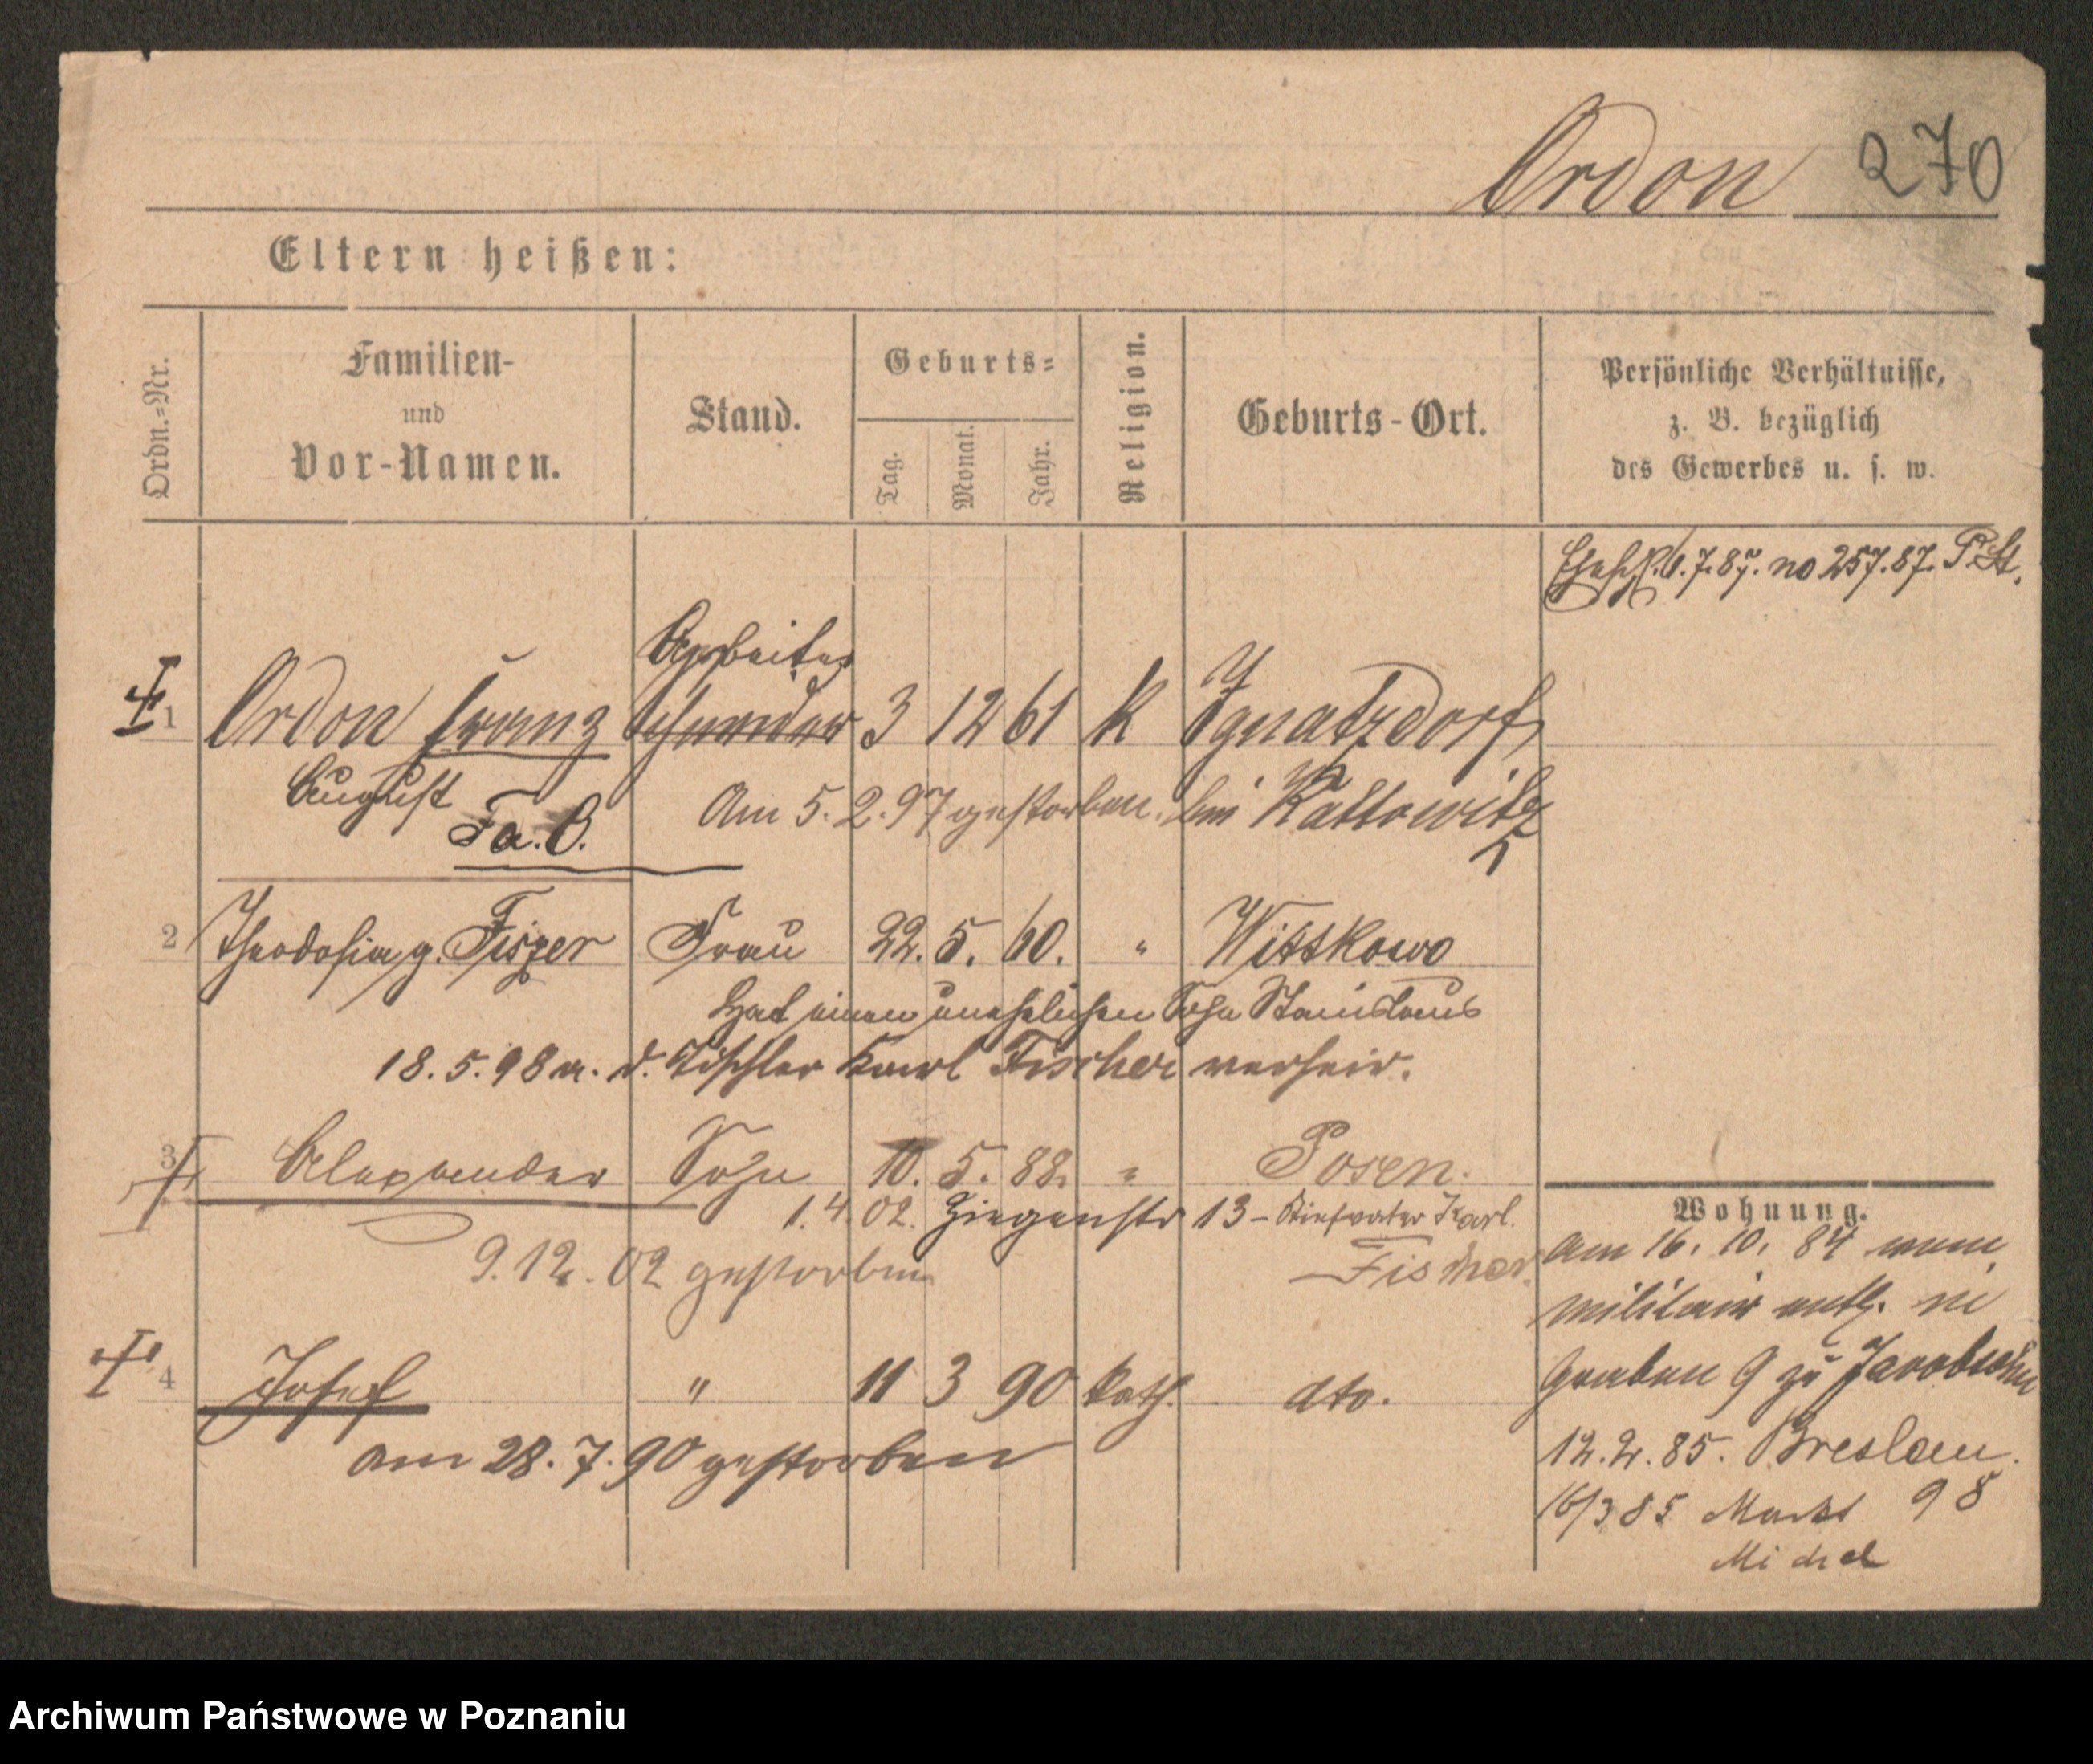 Ordon 270
Eltern heißen:
Ordn.-Nr.
Familien-
und
Vor-Namen.
Stand.
Geburts-
Tag.
Monat.
Jahr.
Religion.
Geburts-Ort.
Persönliche Verhältnisse,
z. B. bezüglich
des Gewerbes u. s. w.
6.7.87. no 257.87. P. St.
Arbeiter
1 Ordon Franz 3 12 61 K Ignatzdorf
August Am 5.2.97 gestorben. bei Kattowitz
Ta. O.
2 Theodosia g. Fiszer Frau 22. 5. 60. " Wittkowo
Hat einen unehelichen Sohn Stanislaus
18.5.98 m. d. Tischler Karl Fischer verheir.
3 Alexander Sohn 10. 5. 88. " Posen.
1.4.02. Ziegenstr 13 - Stiefvater Karl
Fischer.
9.12.02 gestorben
4 Josef " 11 3 90 kath. dto.
am 28.7.90 gestorben
Wohnung.
am 16. 10. 84 vom
Militair entl. in
Graben 9 zu Jacobsohn
12.2.85. Breslau.
16/3 85 Markt 98
Michel
Archiwum Państwowe w Poznaniu